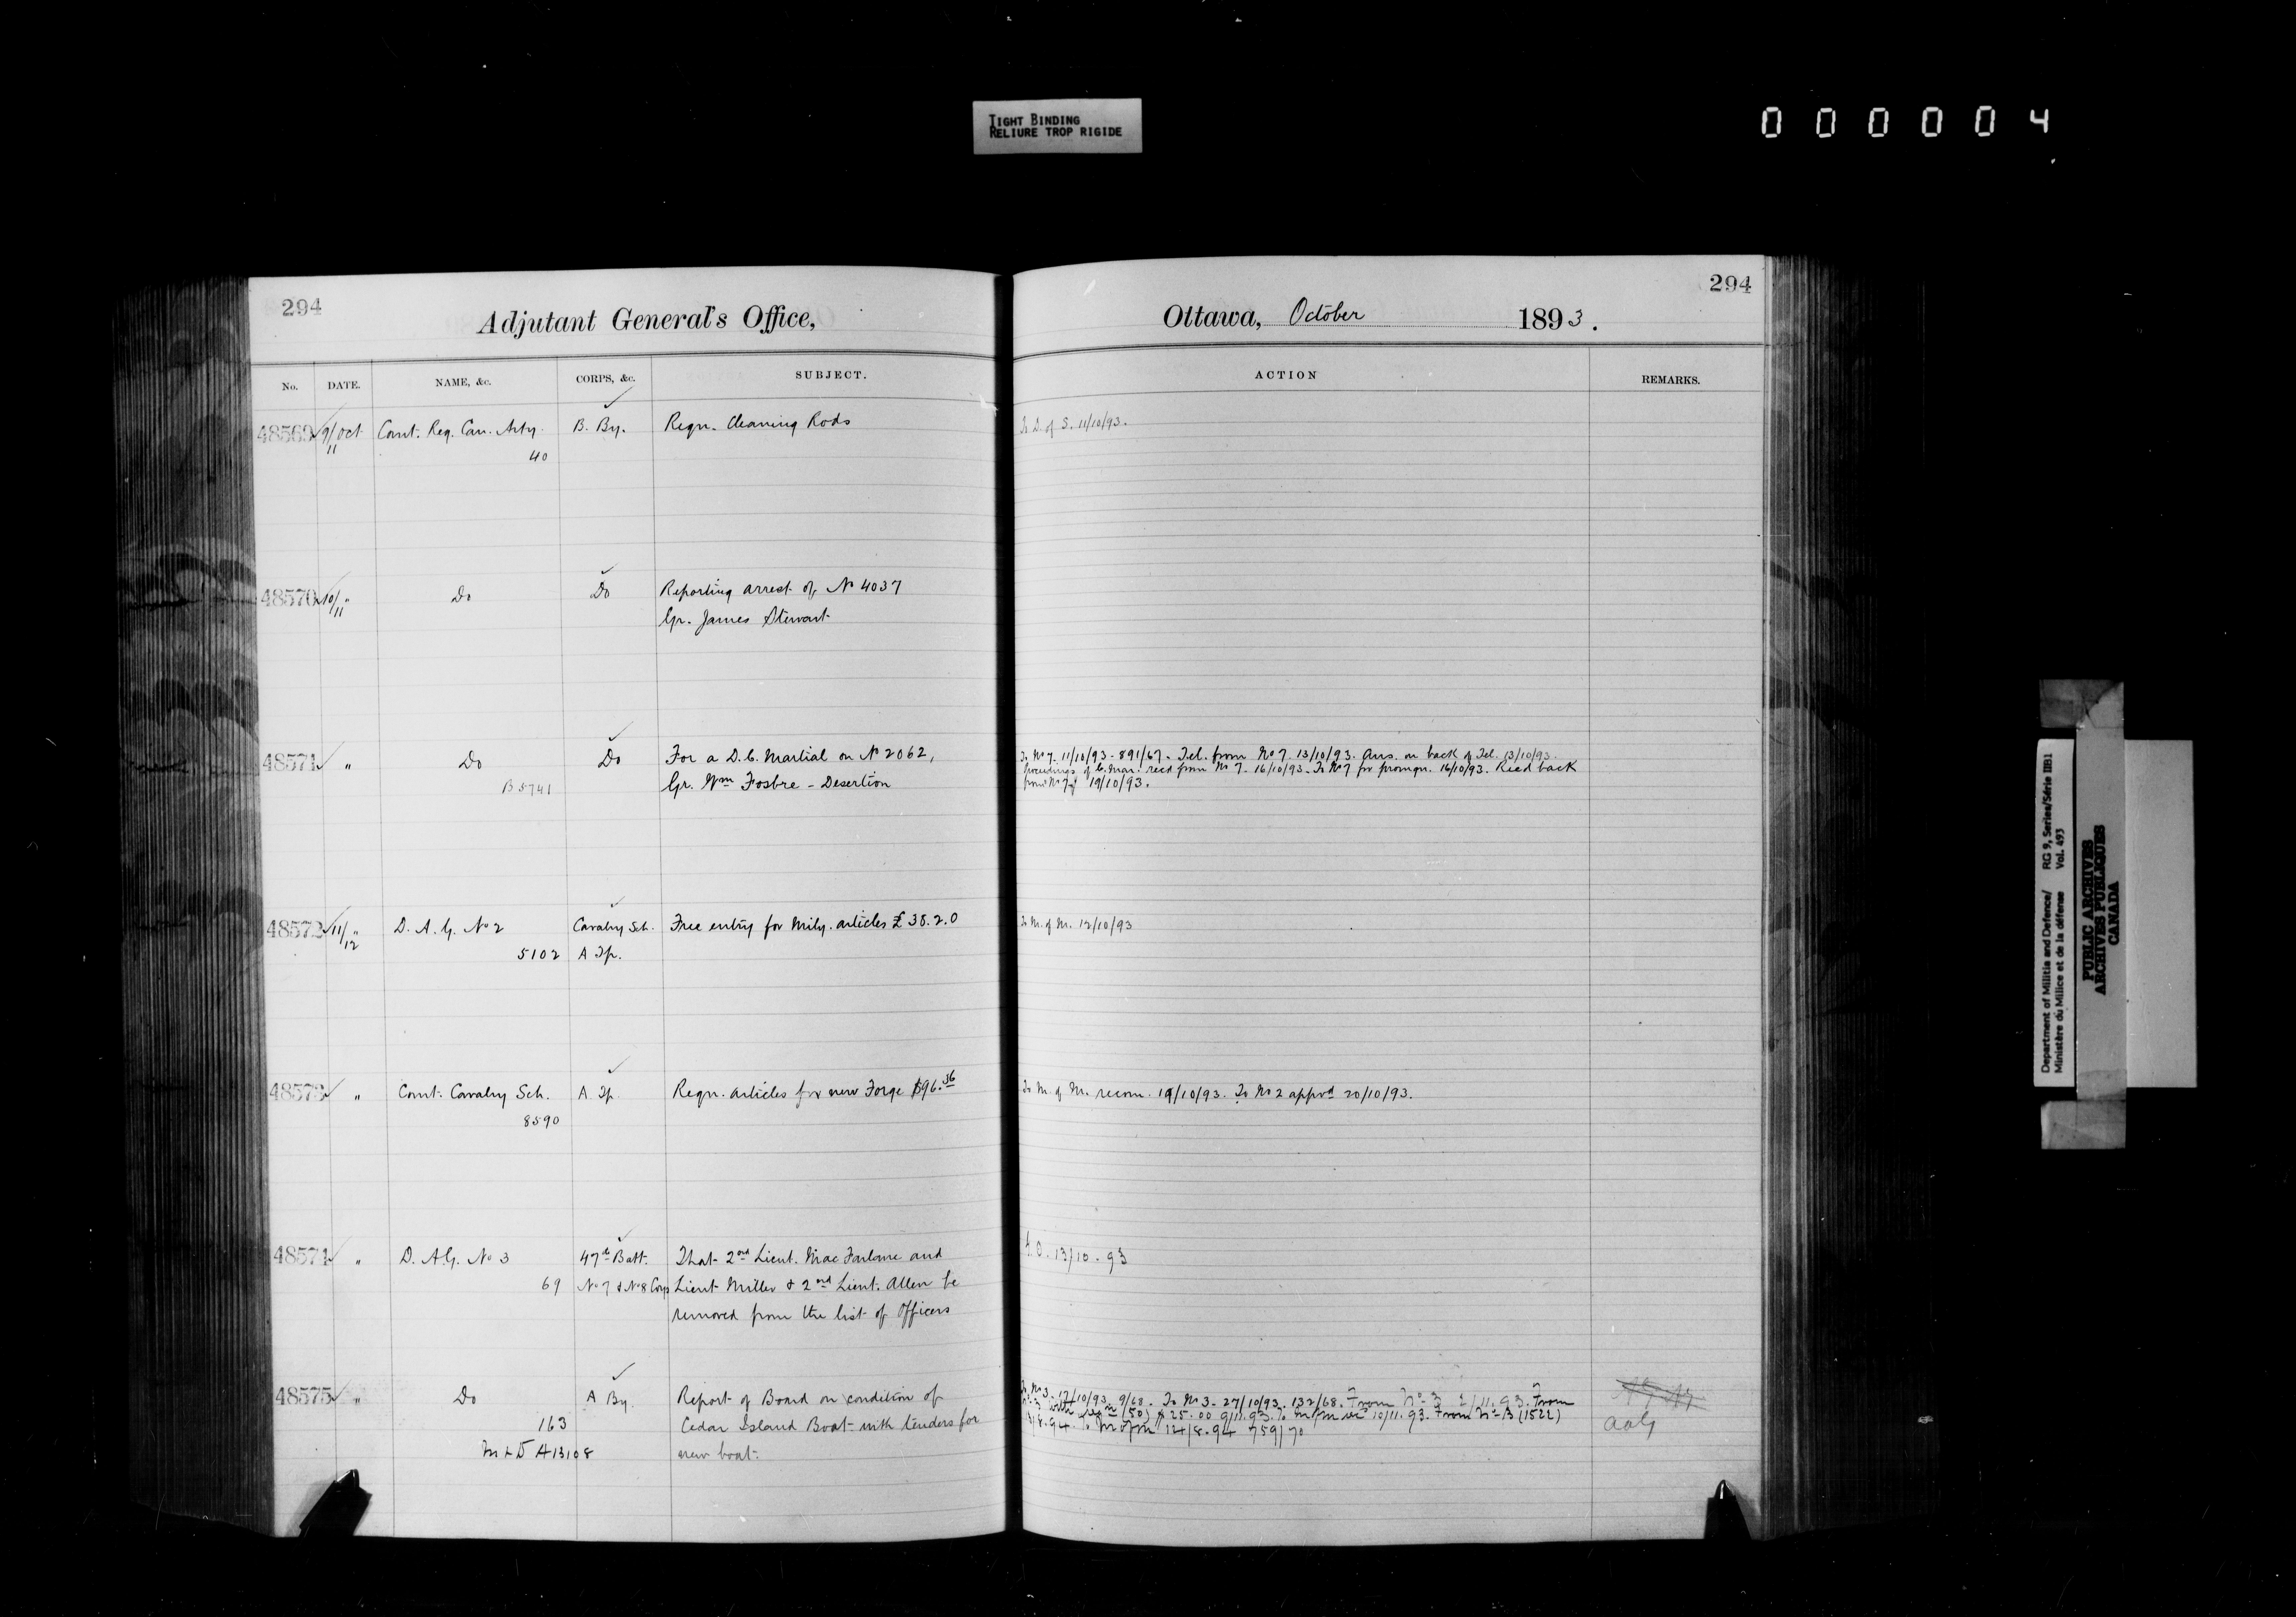 TIGHT BINDING
RELIURE TROP RIGIDE
000004
294
Adjutant General's Office,
No. DATE. NAME, &c. CORPS, &c. SUBJECT.
48569 9/Oct Comt. Reg. Can. Arty. B. By. Reqn. Cleaning Rods
11
40
48570 10/11 " Do Do Reporting arrest of No 4037
Gr. James Stewart
48571 " Do Do For a D.C. Martial on No 2062,
B5741 Gr. Wm Fosbre - Desertion
48572 11/12 " D. A. G. No 2 Cavalry Sch. Free entry for Mily. articles £38.2.0
5102 A Tp.
48573 " Comt. Cavalry Sch. A. Tp. Reqn. articles for new Forge $96.36
8590
48574 " D. A. G. No 3 47th Batt. That 2nd Lieut. MacFarlane and
69 No 7 & No 8 Corps Lieut Miller & 2nd Lieut. Allen be
removed from the list of Officers
48575 " Do A By. Report of Board on condition of
163 Cedar Island Boat with tenders for
M & D A13108 new boat.
294
Ottawa, October 1893.
ACTION REMARKS.
To D. of S. 11/10/93.
To No 7. 11/10/93 - 891/67. Tel. from No 7. 13/10/93. Ans. on back of Tel. 13/10/93.
Proceedings of C. Mar. recd from No 7. 16/10/93. To No 7 for promgn. 16/10/93. Recd back
from No 7 19/10/93.
To M. of M. 12/10/93
To M. of M. recom. 19/10/93. To No 2 apprvd 20/10/93.
G.O. 13/10.93
To No 3 - 17/10/93 9/68. To No 3 - 27/10/93. 132/68. From No 3 2/11.93. From
No 3 with (50) $25.00 9/11.93. To M of M 10/11.93. From No 3 (1522)
8.94. To M of M 14/8.94 759/70
AAG
Department of Militia and Defence/ RG 9, Series/Série IIB1
Ministère du Milice et de la défense Vol. 493
PUBLIC ARCHIVES
ARCHIVES PUBLIQUES
CANADA